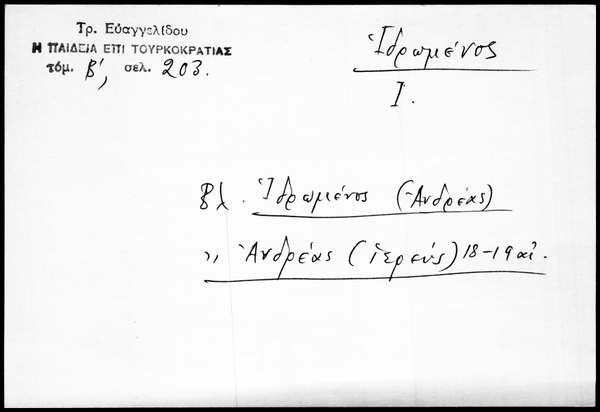 Τρ. Εὐαγγελίδου
Η ΠΑΙΔΕΙΑ ΕΠΙ ΤΟΥΡΚΟΚΡΑΤΙΑΣ
τόμ. Β', σελ. 203.
Ἰδρωμένος
Ι.
Βλ. Ἰδρωμένος (Ἀνδρέας)
,, Ἀνδρέας (ἱερεύς) 18-19 αἰ.